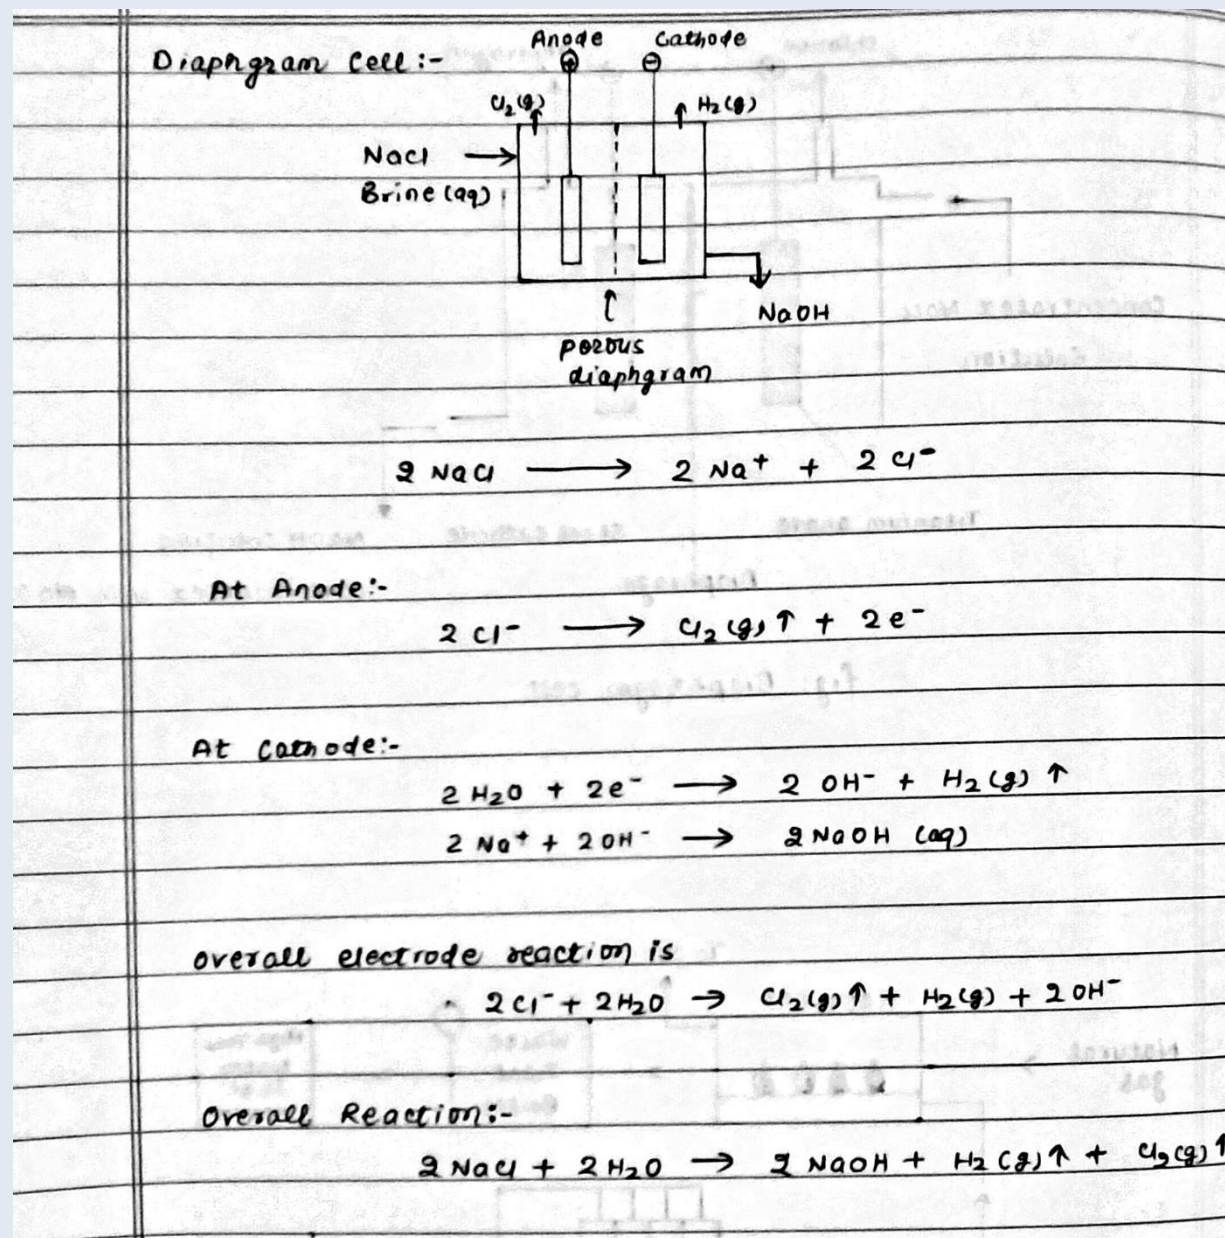 Anode Cathode
Diaphgram Cell:-
⊕ ⊖
Cl₂(g) ↑ ↑ H₂(g)
NaCl →
Brine (aq)
NaOH
porous
diaphgram
2 NaCl → 2 Na⁺ + 2 Cl⁻
At Anode:-
2 Cl⁻ → Cl₂(g) ↑ + 2e⁻
At Cathode:-
2 H₂O + 2e⁻ → 2 OH⁻ + H₂(g) ↑
2 Na⁺ + 2OH⁻ → 2 NaOH (aq)
overall electrode reaction is
2 Cl⁻ + 2H₂O → Cl₂(g)↑ + H₂(g) + 2 OH⁻
Overall Reaction:-
2 NaCl + 2 H₂O → 2 NaOH + H₂(g)↑ + Cl₂(g)↑